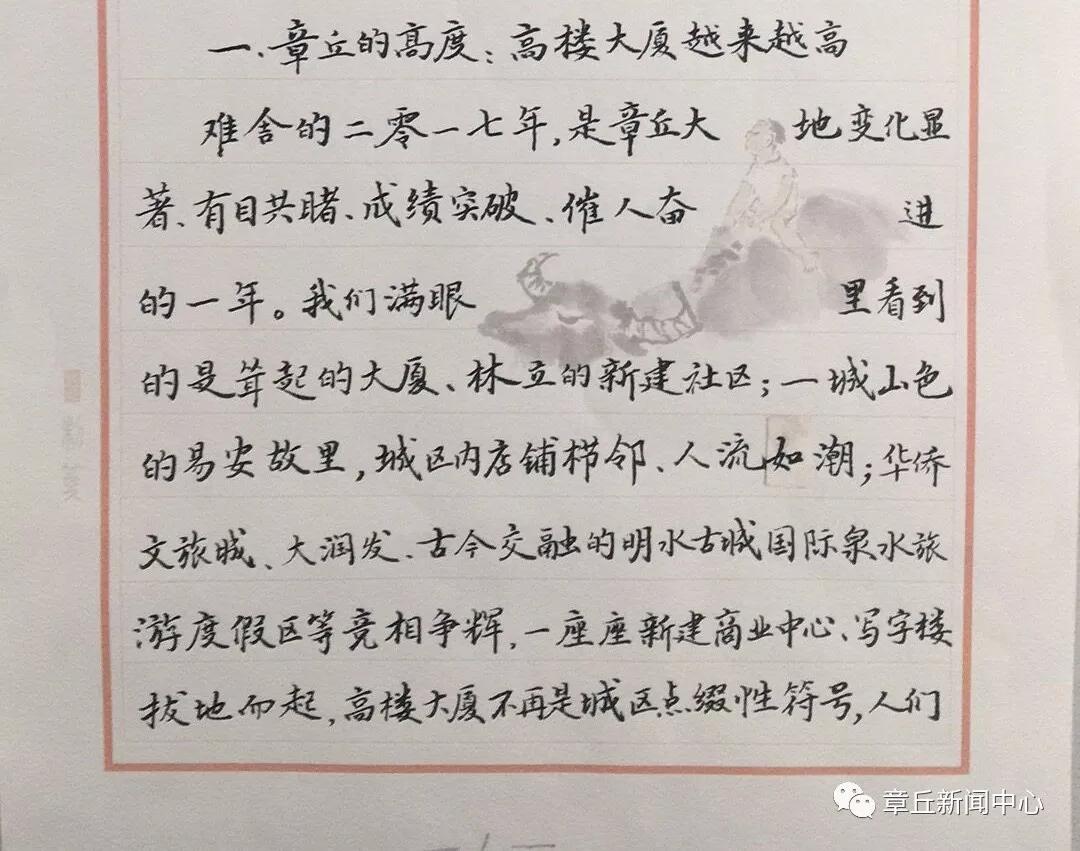 一、章丘的高度：高楼大厦越来越高
难舍的二零一七年，是章丘大地变化显
著、有目共睹、成绩突破、催人奋进
的一年。我们满眼里看到
的是耸起的大厦、林立的新建社区；一城山色
的易安故里，城区内店铺栉邻、人流如潮；华侨
文旅城、大润发、古今交融的明水古城国际泉水旅
游度假区等竞相争辉，一座座新建商业中心、写字楼
拔地而起，高楼大厦不再是城区点缀性符号，人们
章丘新闻中心